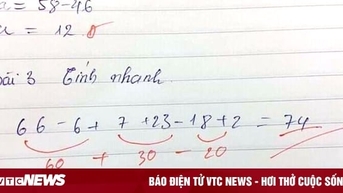 = 58-46
= 12
bài 3 Tính nhanh.
66 - 6 + 7 + 23 - 18 + 2 = 74
60 + 30 - 20
VTC NEWS
BÁO ĐIỆN TỬ VTC NEWS - HƠI THỞ CUỘC SỐNG